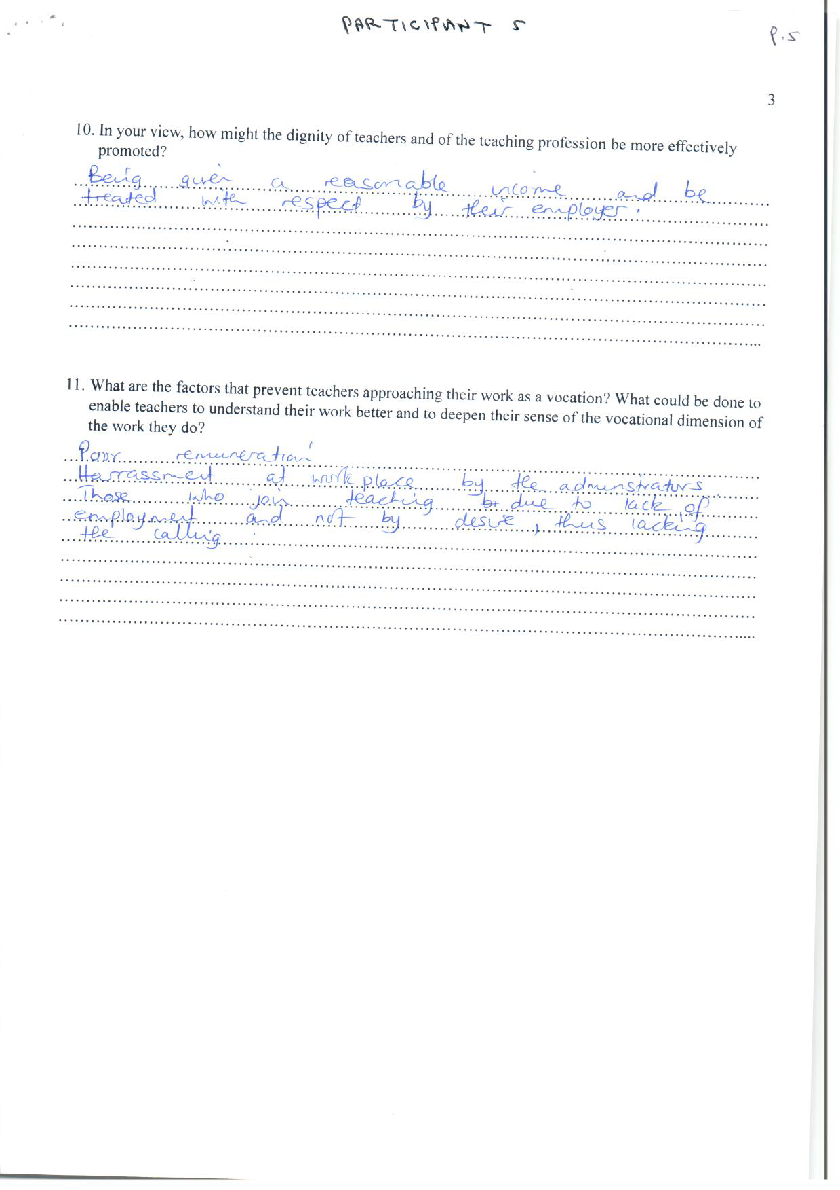 PARTICIPANT 5
P.5
3
10. In your view, how might the dignity of teachers and of the teaching profession be more effectively
promoted?
Being given a reasonable income and be
treated with respect by their employer.
11. What are the factors that prevent teachers approaching their work as a vocation? What could be done to
enable teachers to understand their work better and to deepen their sense of the vocational dimension of
the work they do?
Poor remuneration
Harrassment at work place by the adminstrators
Those who join teaching due to lack of
employment and not by desire, thus lacking
the calling